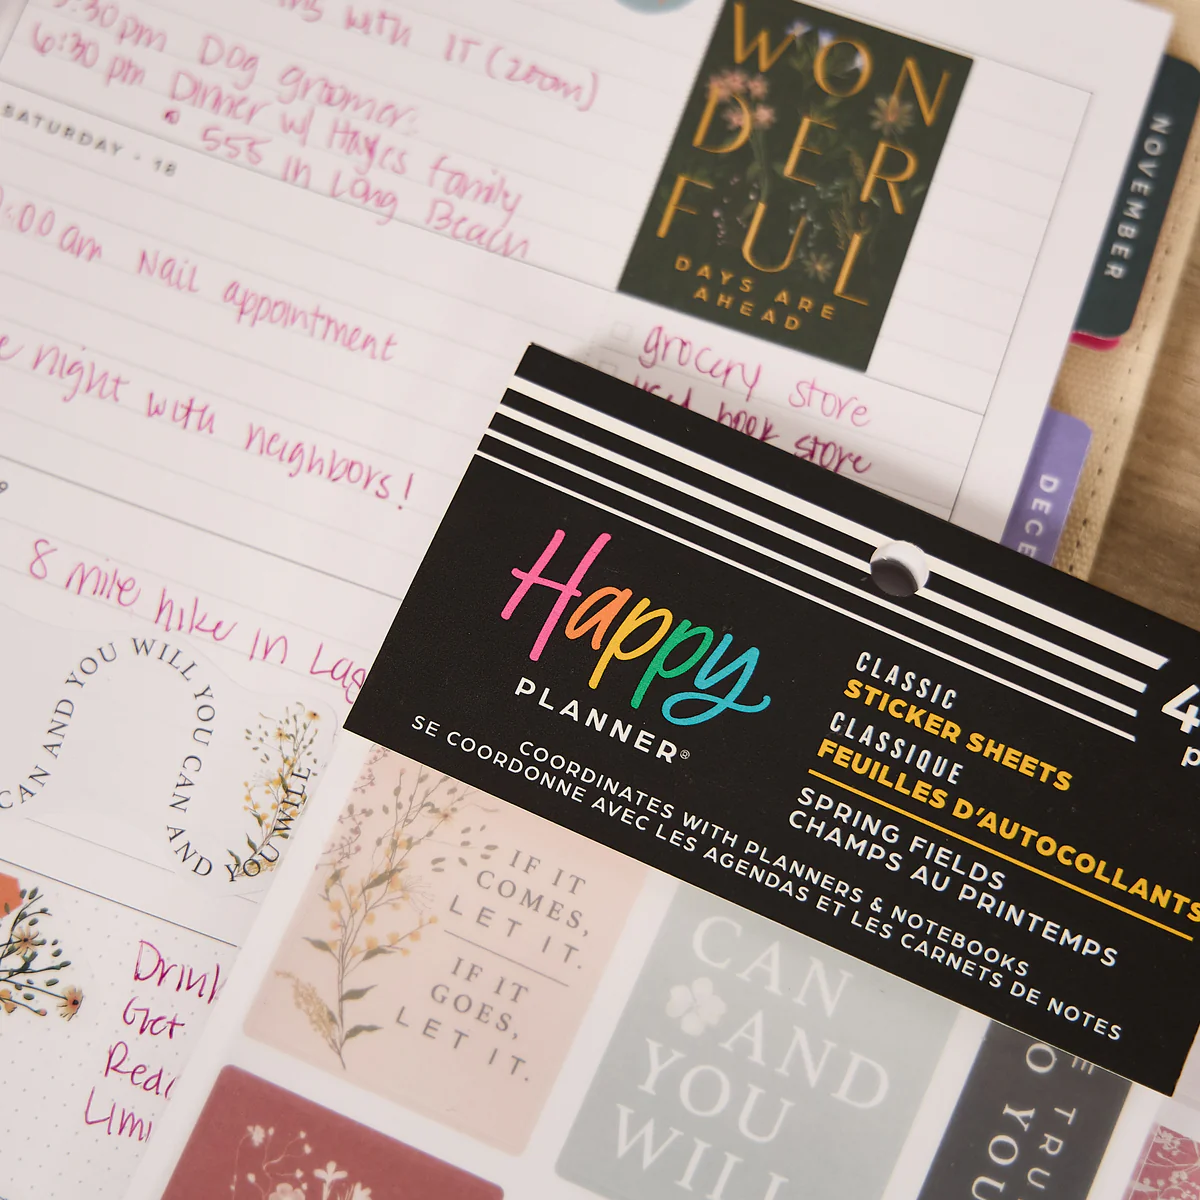 with IT (zoom)
:30pm Dog groomer
6:30 pm Dinner w/ Hayes family
• 555 in Long
Beach
SATURDAY • 18
:00 am Nail appointment
night with neighbors!
8 mile hike in
WONDERFUL
DAYS ARE
AHEAD
grocery store
used book store
NOVEMBER
DECE
CAN AND YOU WILL YOU CAN AND YOU WILL
Drin
Get
Red
Limi
Happy
PLANNER®
COORDINATES WITH PLANNERS & NOTEBOOKS
SE COORDONNE AVEC LES AGENDAS ET LES CARNETS DE NOTES
CLASSIC
STICKER SHEETS
CLASSIQUE
FEUILLES D'AUTOCOLLANTS
SPRING FIELDS
CHAMPS AU PRINTEMPS
4
p
IF IT
COMES,
LET IT.
IF IT
GOES,
LET IT.
CAN
AND
YOU
WILL
E TRU
O YOU